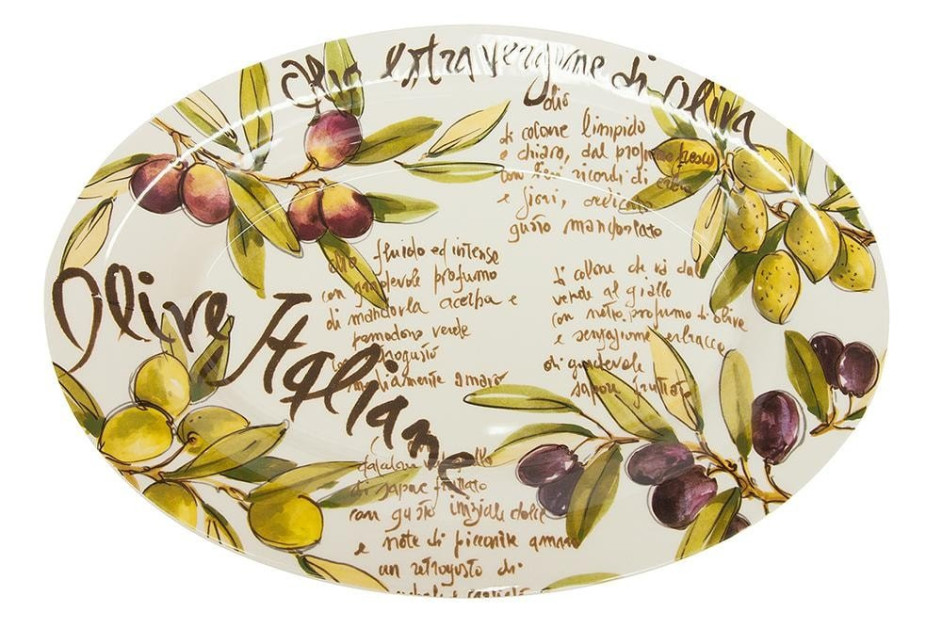 Olio extra vergine di oliva
olio
di colore limpido
e chiaro, dal profumo fresco
con lievi ricordi di erba
e fiori, delicato
gusto mandorlato
Olive Italiane
olio fluido ed intenso
con gradevole profumo
di mandorla acerba e
pomodoro verde
retrogusto
amaro
di colore che va dal
verde al giallo
con netto profumo di olive
e sensazione erbacea
di gradevole
sapore fruttato
di sapore fruttato
con gusto iniziale dolce
e note di piccante amaro
un retrogusto di